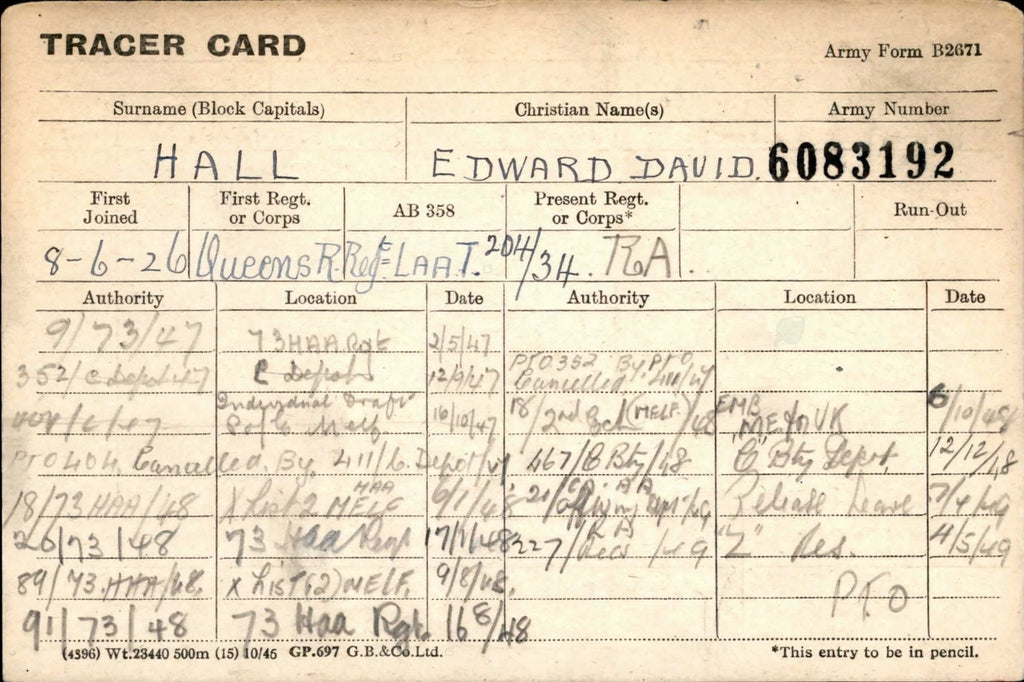 TRACER CARD
Army Form B2671
Surname (Block Capitals) Christian Name(s) Army Number
HALL EDWARD DAVID. 6083192
First Joined First Regt. or Corps AB 358 Present Regt. or Corps* Run-Out
8-6-26 Queens R. Regt= LAAT. 204/34. RA.
Authority Location Date Authority Location Date
9/73/47 73 HAA Rgt 2/5/47
352/C Depot/47 C Depot 12/9/47 PTO. 352 By. PTO Cancelled 411/47
Individual Draft 16/10/47 18/2nd (MELF)/48 EMB ME to UK 6/10/48
PTO 404. Cancelled. By. 411/C. Depot/47 467/C Bty/48 C Bty Depot. 12/12/48
18/73 HAA/48 X List 2 HAA MELF 6/1/48 Release Leave
20/73/48 73 Haa Regt 17/1/48 227/RA Rec/49 "Z" Res. 4/5/49
89/73.HAA/48. X LIST(2) MELF. 9/8/48.
91/73/48 73 Haa Rgt. 16 8/48 PTO
(4396) Wt.23440 500m (15) 10/46 GP.697 G.B.&Co.Ltd. *This entry to be in pencil.